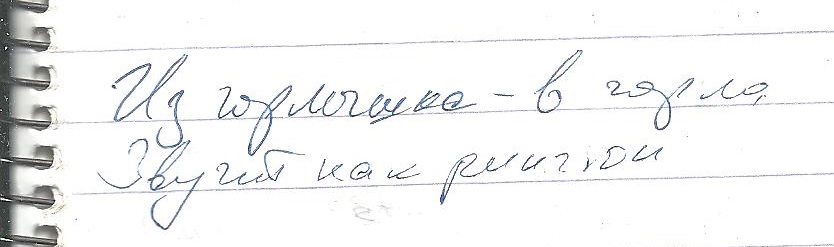 Из горлышка – в горло,
Звучит как рингтон